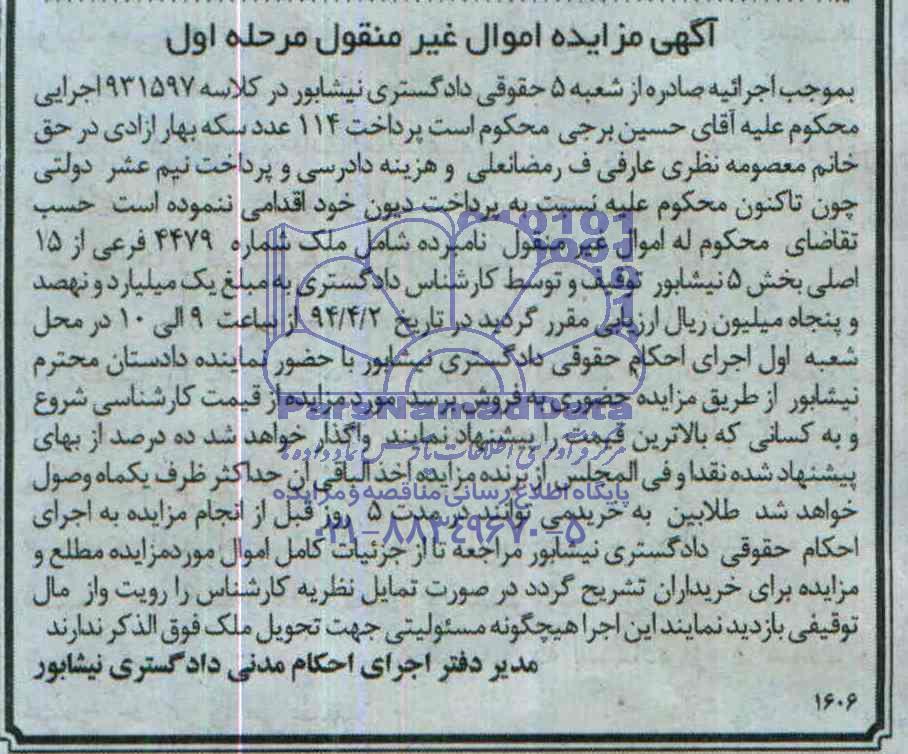 آگهی مزایده اموال غیر منقول مرحله اول
بموجب اجرائیه صادره از شعبه ۵ حقوقی دادگستری نیشابور در کلاسه ۹۳۱۵۹۷ اجرایی
محکوم علیه آقای حسین برجی محکوم است پرداخت ۱۱۴ عدد سکه بهار ازادی در حق
خانم معصومه نظری عارفی ف رمضانعلی و هزینه دادرسی و پرداخت نیم عشر دولتی
چون تاکنون محکوم علیه نسبت به پرداخت دیون خود اقدامی ننموده است حسب
تقاضای محکوم له اموال غیر منقول نامبرده شامل ملک شماره ۴۴۷۹ فرعی از ۱۵
اصلی بخش ۵ نیشابور توقیف و توسط کارشناس دادگستری به مبلغ یک میلیارد و نهصد
و پنجاه میلیون ریال ارزیابی مقرر گردید در تاریخ ۹۴/۴/۲ از ساعت ۹ الی ۱۰ در محل
شعبه اول اجرای احکام حقوقی دادگستری نیشابور با حضور نماینده دادستان محترم
نیشابور از طریق مزایده حضوری به فروش برسد مورد مزایده از قیمت کارشناسی شروع
ParsNamadData
و به کسانی که بالاترین قیمت را پیشنهاد نمایند واگذار خواهد شد ده درصد از بهای
پیشنهاد شده نقدا و فی المجلس از برنده مزایده اخذ الباقی ان حداکثر ظرف یکماه وصول
پایگاه اطلاع رسانی مناقصه و مزایده
خواهد شد طلابین به خریدمی توانند در مدت ۵ روز قبل از انجام مزایده به اجرای
۰۲۱-۸۸۳۴۹۶۷۰-۵
احکام حقوقی دادگستری نیشابور مراجعه تا از جزئیات کامل اموال موردمزایده مطلع و
مزایده برای خریداران تشریح گردد در صورت تمایل نظریه کارشناس را رویت واز مال
توقیفی بازدید نمایند این اجرا هیچگونه مسئولیتی جهت تحویل ملک فوق الذکر ندارند
مدیر دفتر اجرای احکام مدنی دادگستری نیشابور
۱۶۰۶